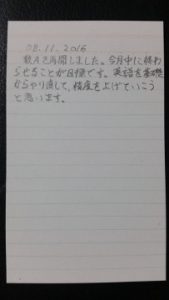 08.11.2016
数Aを再開しました。今月中に終わ
らせることが目標です。英語を基礎
からやり直して、精度を上げていこう
と思います。